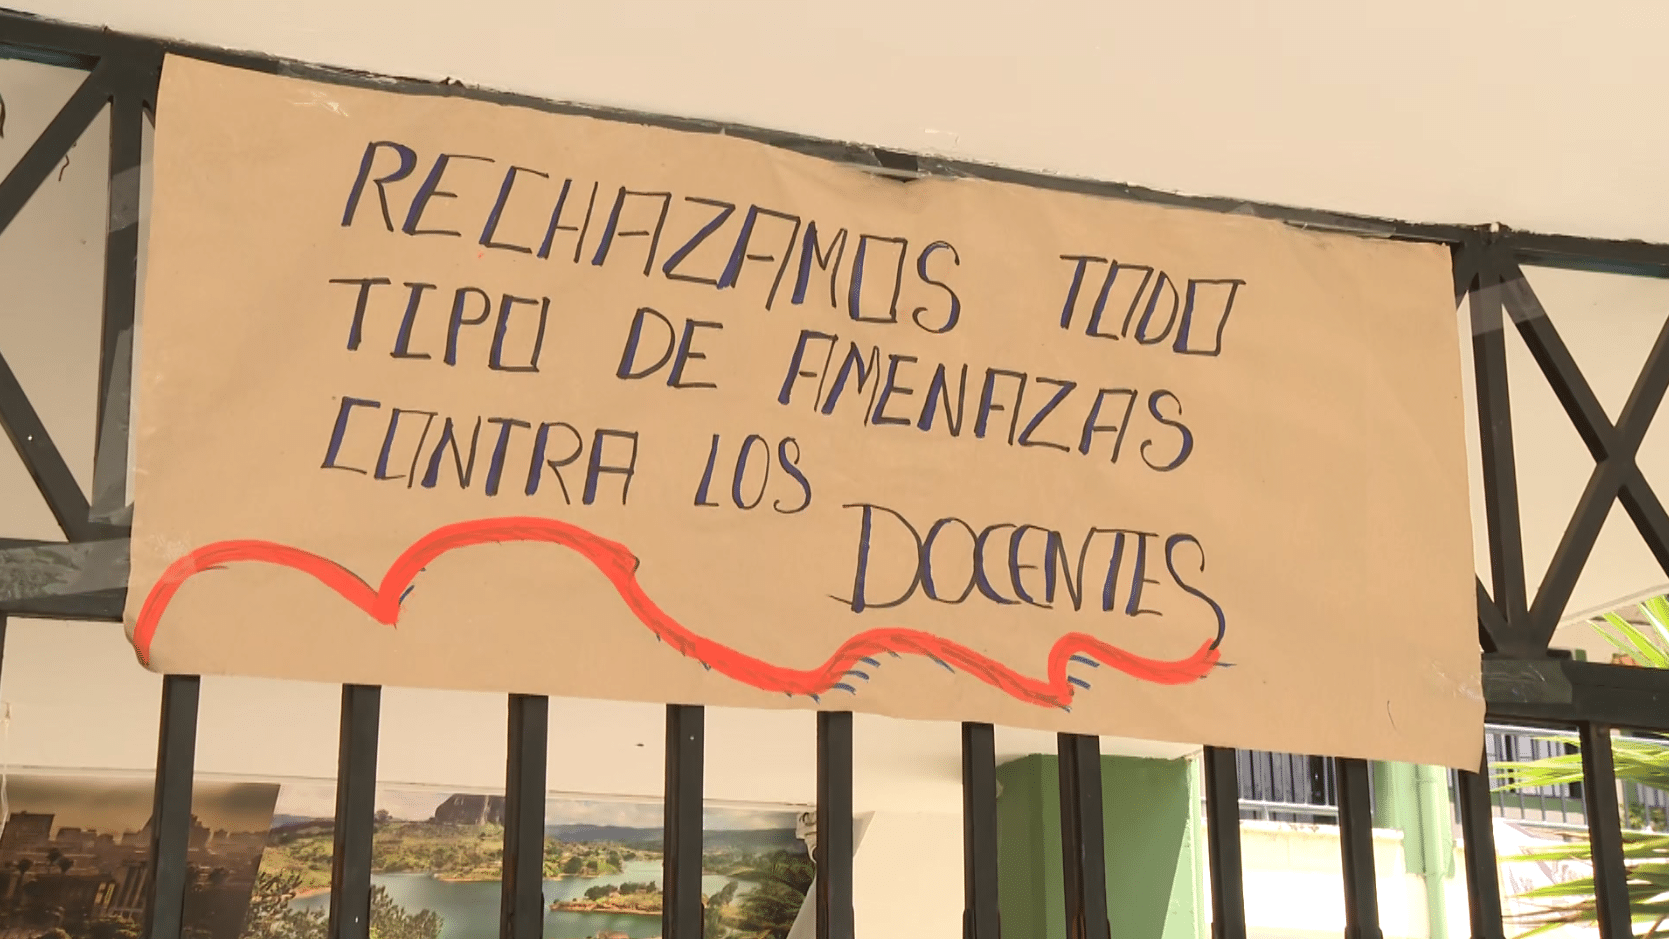 RECHAZAMOS TODO
TIPO DE AMENAZAS
CONTRA LOS
DOCENTES